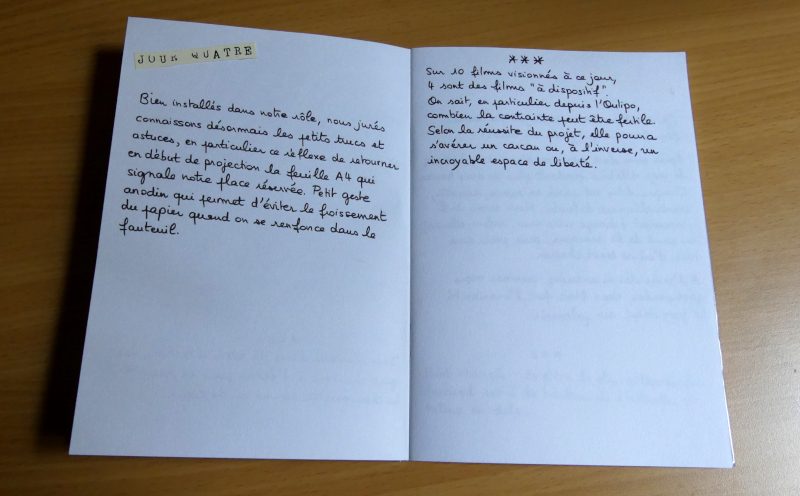 JOUR QUATRE
Bien installés dans notre rôle, nous jurés
connaissons désormais les petits trucs et
astuces, en particulier ce réflexe de retourner
en début de projection la feuille A4 qui
signale notre place réservée. Petit geste
anodin qui permet d'éviter le froissement
du papier quand on se renfonce dans le
fauteuil.
***
Sur 10 films visionnés à ce jour,
4 sont des films "à dispositif".
On sait, en particulier depuis l'Oulipo,
combien la contrainte peut être fertile.
Selon la réussite du projet, elle pourra
s'avérer un carcan ou, à l'inverse, un
incroyable espace de liberté.